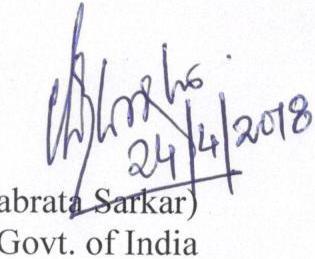 24/4/2018
abrata Sarkar)
Govt. of India